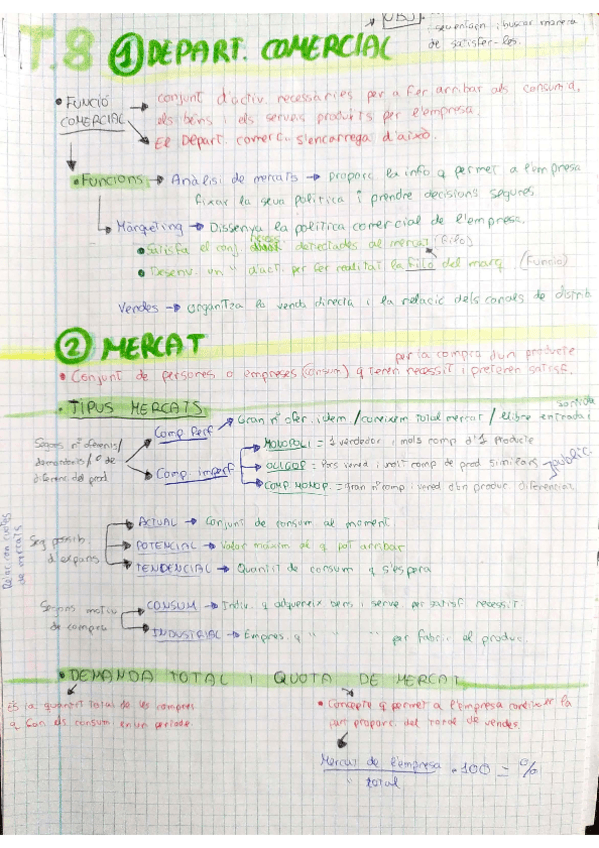 OBJ.
i buscar manera
de satisfer-les.
T.8 ① DEPART. COMERCIAL
• FUNCIÓ COMERCIAL → conjunt d'activ. necessàries per a fer arribar als consumid.
els bens i els serveis produïts per l'empresa.
→ El Depart. comerc. s'encarrega d'això.
• Funcions → Anàlisi de mercats → proporc la info q permet a l'empresa
fixar la seva política i prendre decisions segures
Màrqueting → Dissenya la política comercial de l'empresa.
• Satisfà el conj. necess detectades al mercat (filo)
• Desenv. un " d'acti per fer realitat la filo del marq (Funció)
Vendes → organitza la venda directa i la relació dels canals de distrib
② MERCAT
per la compra d'un producte
• Conjunt de persones o empreses (consum) q tenen necessit i preferen satisf.
• TIPUS MERCATS
Comp Perf → Gran nº ofer. i dem / coneixem total mercat / llibre entrada i
sortida
Segons nº oferents/
demandants/º de
diferenc del prod
Comp. imperf → MONOPOLI = 1 venedor i molts comp d'1 producte
→ OLIGOP = Pocs vened i molt comp de prod similars → public.
→ COMP. MONOP. = Gran nº comp i vened d'un produc diferenciat
Seg possib.
d'expans
→ ACTUAL → Conjunt de consum al moment
→ POTENCIAL → Valor màxim al q pot arribar
→ TENDENCIAL → Quantit de consum q s'espera
Relac con cuotes
de mercats
Segons motiu
de compra
→ CONSUM → Indiv. q adquereix bens i serve per satisf necessit
→ INDUSTRIAL → Empres. q " " " per fabri el produc.
• DEMANDA TOTAL I QUOTA DE MERCAT
És la quantit total de les compres
q fan els consum en un període.
• Concepte q permet a l'empresa conèixer la
part proporc. del total de vendes.
Mercat de l'empresa · 100 = %
" total